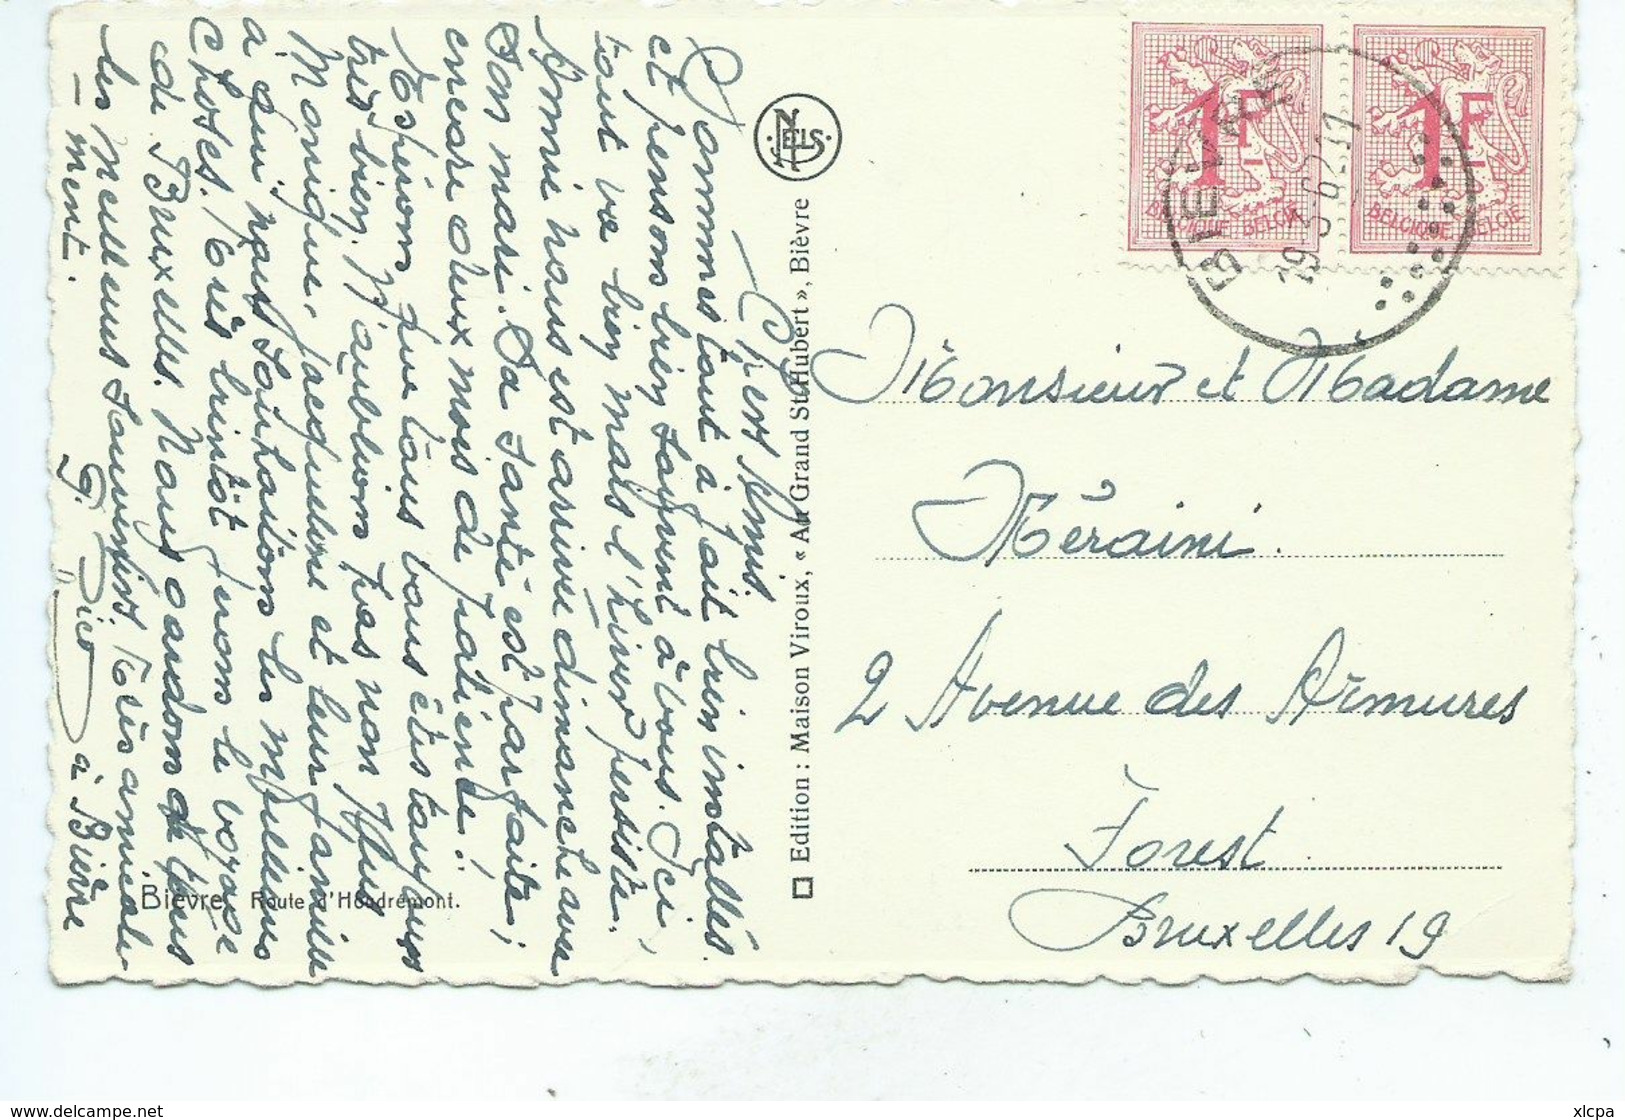 Chers Amis.
Sommes tout à fait bien installés
et pensons bien souvent à vous. Ici,
tout va bien mais l'hiver persiste.
Annie nous est arrivée dimanche avec
son mari. Sa santé est parfaite;
encore deux mois de patience!
Espérons que tous vous êtes toujours
très bien. N'oublions pas non plus
Monique, Jacqueline et leur famille
à qui nous souhaitons les meilleures
choses. Très bientôt ferons le voyage
de Bruxelles. Nous gardons tous
les meilleurs souvenirs. Très amicale-
-ment.
à Bièvre
Bièvre Route d'Houdremont.
NELS
Edition : Maison Viroux, « Au Grand St-Hubert », Bièvre
1F
BELGIQUE BELGIË
1F
BELGIQUE BELGIË
BIEVRE
19-3-62-11
Monsieur et Madame
Méraini.
2 Avenue des Armures
Forest
Bruxelles 19
http://www.delcampe.net
xlcpa